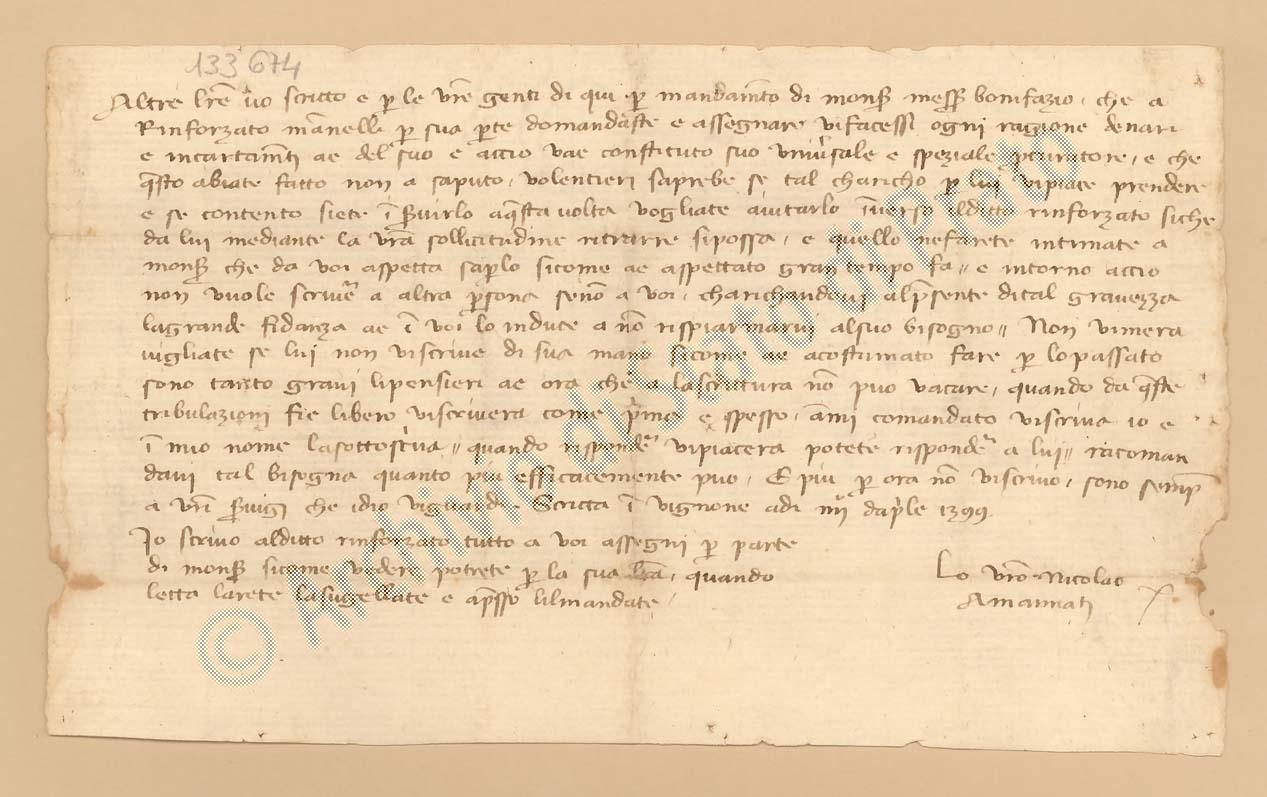 133 674
Altre lre vo scritto e p le vre genti di qui p mandamto di monsr messr bonifazio, che a
Rinforzato manelli p sua pte domandaste e assegnare vi facessi ogni ragione denari
e incartamti ae del suo e accio vae constituto suo univsale e speziale pcuratore, e che
qsto abiate fatto non a saputo, volentieri saprebe se tal charicho p lui vi piace prendere
e se contento siete i svirlo aqsta volta vogliate aiutarlo inverso il ditto rinforzato siche
da lui mediante la vra sollicitudine ritrarre si possa, e quello ne farete intimate a
monsr che da voi aspetta saplo sicome ae aspettato gran tempo fa // e intorno accio
non vuole scrivre a altra psona seno a voi, charichandovi al psente di tal gravezza
la grande fidanza ae i voi lo induce a no rispiarmarvi al suo bisogno // Non vi mera
vigliate se lui non vi scrive di sua mano sicome ae acostumato fare p lo passato
sono tanto gravi li pensieri ae ora che a la scrittura no puo vacare, quando da qste
tribulazioni fie libero vi scrivera come prima e spesso, ami comandato vi scriva io e
i mio nome la sottoscriva // quando rispondre vi piacera potete rispondre a lui // racoman
davi tal bisogna quanto piu efficacemente puo, E piu p ora no vi scrivo, sono semp
a vri svigi che idio vi guardi. Scritta i vignone adi iiij daprile 1399
Io scrivo al ditto rinforzato tutto a voi assegni p parte
di monsr sicome vedere potrete p la sua lra, quando
letta larete la sugellate e apsso lil mandate,
Lo vro Nicolao
Amannati
© Archivio di Stato di Prato